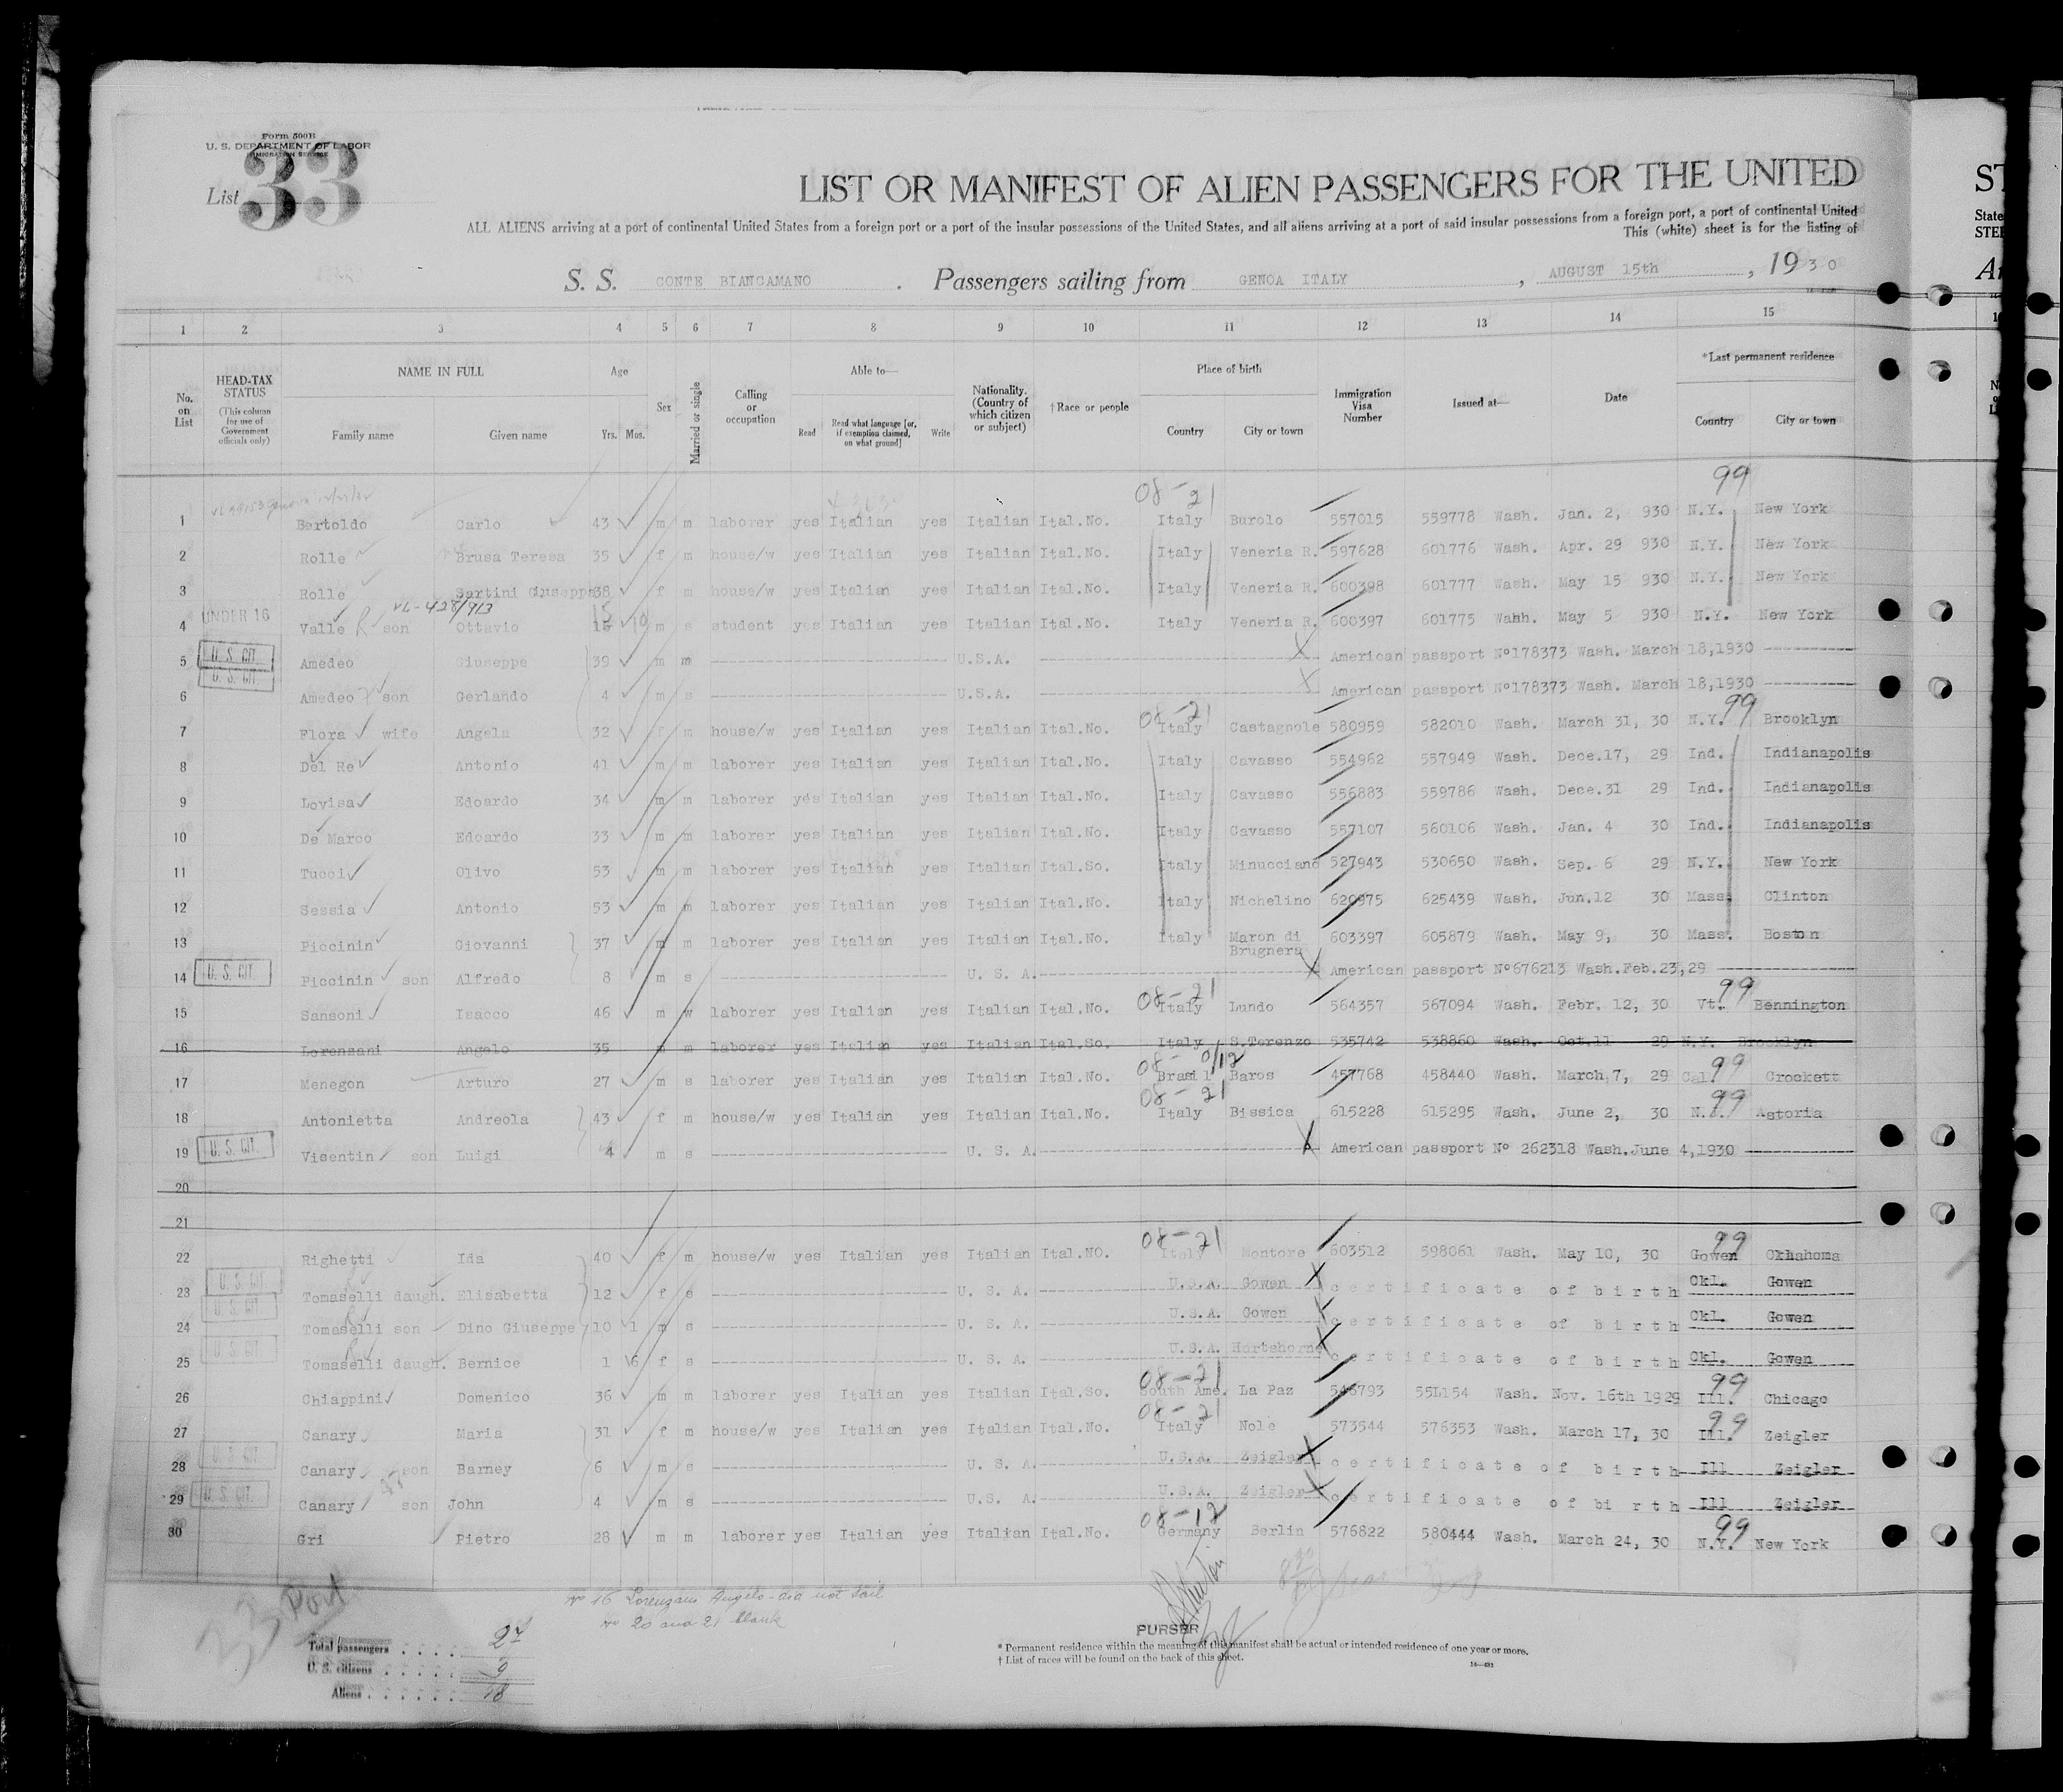 Form 500B
U. S. DEPARTMENT OF LABOR
IMMIGRATION SERVICE
List 33
LIST OR MANIFEST OF ALIEN PASSENGERS FOR THE UNITED
ST
ALL ALIENS arriving at a port of continental United States from a foreign port or a port of the insular possessions of the United States, and all aliens arriving at a port of said insular possessions from a foreign port, a port of continental United
State
This (white) sheet is for the listing of
S. S. CONTE BIANCAMANO . Passengers sailing from GENOA ITALY , AUGUST 15th , 1930
1 2 3 4 5 6 7 8 9 10 11 12 13 14 15
No. on List
HEAD-TAX STATUS (This column for use of Government officials only)
NAME IN FULL Family name Given name
Age Yrs. Mos.
Sex
Married or single
Calling or occupation
Able to— Read Read what language [or, if exemption claimed, on what ground] Write
Nationality. (Country of which citizen or subject)
† Race or people
Place of birth Country City or town
Immigration Visa Number
Issued at—
Date
*Last permanent residence Country City or town
08-21 99
1 Bertoldo Carlo 43 m m laborer yes Italian yes Italian Ital.No. Italy Burolo 557015 559778 Wash. Jan. 2, 930 N.Y. New York
2 Rolle Brusa Teresa 35 f m house/w yes Italian yes Italian Ital.No. Italy Veneria R. 597628 601776 Wash. Apr. 29 930 N.Y. New York
3 Rolle Sartini Giuseppa 38 f m house/w yes Italian yes Italian Ital.No. Italy Veneria R. 600398 601777 Wash. May 15 930 N.Y. New York
UNDER 16 VL-428/913
4 Valle son Ottavio 15 10 m s student yes Italian yes Italian Ital.No. Italy Veneria R. 600397 601775 Wahh. May 5 930 N.Y. New York
U. S. CIT.
5 Amedeo Giuseppe 39 m m U.S.A. X American passport Nº178373 Wash. March 18,1930
U. S. CIT.
6 Amedeo son Gerlando 4 m s U.S.A. X American passport Nº178373 Wash. March 18,1930
08-21 99
7 Flora wife Angela 32 f m house/w yes Italian yes Italian Ital.No. Italy Castagnole 580959 582010 Wash. March 31, 30 N.Y. Brooklyn
8 Del Re Antonio 41 m m laborer yes Italian yes Italian Ital.No. Italy Cavasso 554962 557949 Wash. Dece.17, 29 Ind. Indianapolis
9 Lovisa Edoardo 34 m m laborer yes Italian yes Italian Ital.No. Italy Cavasso 556883 559786 Wash. Dece.31 29 Ind. Indianapolis
10 De Marco Edoardo 33 m m laborer yes Italian yes Italian Ital.No. Italy Cavasso 557107 560106 Wash. Jan. 4 30 Ind. Indianapolis
11 Tucci Olivo 53 m m laborer yes Italian yes Italian Ital.So. Italy Minucciano 527943 530650 Wash. Sep. 6 29 N.Y. New York
12 Sessia Antonio 53 m m laborer yes Italian yes Italian Ital.No. Italy Nichelino 620975 625439 Wash. Jun.12 30 Mass. Clinton
13 Piccinin Giovanni 37 m m laborer yes Italian yes Italian Ital.No. Italy Maron di Brugnera 603397 605879 Wash. May 9, 30 Mass. Boston
14 U. S. CIT. Piccinin son Alfredo 8 m s U. S. A. X American passport Nº676213 Wash.Feb.23,29
08-21 99
15 Sansoni Isacco 46 m w laborer yes Italian yes Italian Ital.No. Italy Lundo 564357 567094 Wash. Febr. 12, 30 Vt. Bennington
16 Lorenzani Angelo 35 m m laborer yes Italian yes Italian Ital.So. Italy S.Terenzo 535742 538860 Wash. Oct.11 29 N.Y. Brooklyn
17 Menegon Arturo 27 m s laborer yes Italian yes Italian Ital.No. Brasil Baros 457768 458440 Wash. March,7, 29 Cal. 99 Crockett
08-21 99
18 Antonietta Andreola 43 f m house/w yes Italian yes Italian Ital.No. Italy Bissica 615228 615295 Wash. June 2, 30 N.Y. Astoria
19 U. S. CIT. Visentin son Luigi 4 m s U. S. A. X American passport Nº 262318 Wash.June 4,1930
20
21
08-21 99
22 Righetti Ida 40 f m house/w yes Italian yes Italian Ital.NO. Italy Montore 603512 598061 Wash. May 10, 30 Gowen Oklahoma
23 U. S. CIT. Tomaselli daugh. Elisabetta 12 f s U. S. A. U.S.A. Gowen X certificate of birth Okl. Gowen
24 U. S. CIT. Tomaselli son Dino Giuseppe 10 1 m s U. S. A. U.S.A. Gowen X certificate of birth Okl. Gowen
25 U. S. CIT. Tomaselli daugh. Bernice 1 6 f s U. S. A. U.S.A. Hartshorne X certificate of birth Okl. Gowen
08-21 99
26 Chiappini Domenico 36 m m laborer yes Italian yes Italian Ital.So. South Ame. La Paz 546793 55L154 Wash. Nov. 16th 1929 Ill. Chicago
08-21 99
27 Canary Maria 31 f m house/w yes Italian yes Italian Ital.No. Italy Nole 573544 576353 Wash. March 17, 30 Ill. Zeigler
28 U. S. CIT. Canary son Barney 6 m s U. S. A. U.S.A. Zeigler X certificate of birth Ill Zeigler
29 U. S. CIT. Canary son John 4 m s U. S. A. U.S.A. Zeigler X certificate of birth Ill Zeigler
08-12 99
30 Gri Pietro 28 m m laborer yes Italian yes Italian Ital.No. Germany Berlin 576822 580444 Wash. March 24, 30 N.Y. New York
33 Port
Nº 16 Lorenzani Angelo - did not sail
Nº 20 and 21 blank
PURSER
Total passengers 27
U. S. citizens 9
Aliens 18
* Permanent residence within the meaning of this manifest shall be actual or intended residence of one year or more.
† List of races will be found on the back of this sheet.